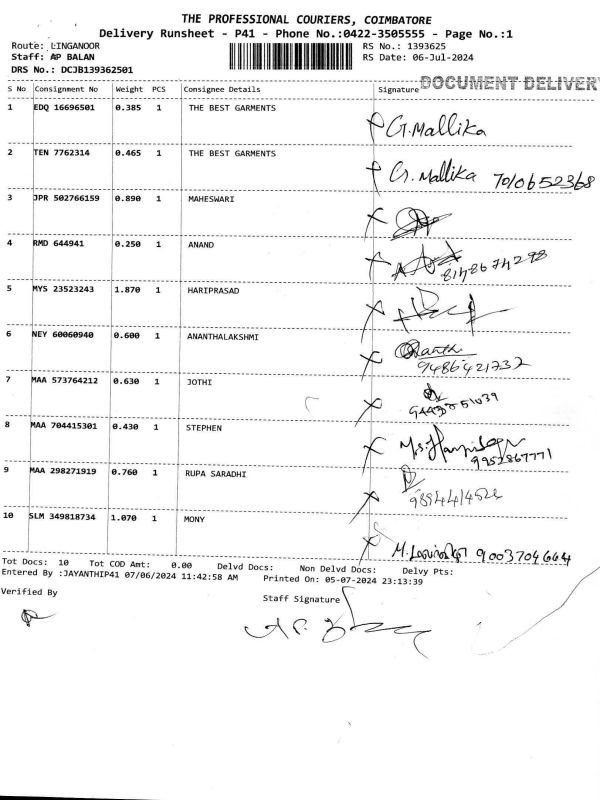 THE PROFESSIONAL COURIERS, COIMBATORE
Delivery Runsheet - P41 - Phone No.:0422-3505555 - Page No.:1
Route: LINGANOOR RS No.: 1393625
Staff: AP BALAN RS Date: 06-Jul-2024
DRS No.: DCJB139362501
DOCUMENT DELIVER
S No Consignment No Weight PCS Consignee Details Signature
1 EDQ 16696501 0.385 1 THE BEST GARMENTS
G.Mallika
2 TEN 7762314 0.465 1 THE BEST GARMENTS
G. Mallika 7010652368
3 JPR 502766159 0.890 1 MAHESWARI
4 RMD 644941 0.250 1 ANAND
8148674298
5 MYS 23523243 1.870 1 HARIPRASAD
6 NEY 60060940 0.600 1 ANANTHALAKSHMI
9486421732
7 MAA 573764212 0.630 1 JOTHI
8 MAA 704415301 0.430 1 STEPHEN
9952867771
9 MAA 298271919 0.760 1 RUPA SARADHI
10 SLM 349818734 1.070 1 MONY
9003704664
Tot Docs: 10 Tot COD Amt: 0.00 Delvd Docs: Non Delvd Docs: Delvy Pts:
Entered By :JAYANTHIP41 07/06/2024 11:42:58 AM Printed On: 05-07-2024 23:13:39
Verified By Staff Signature